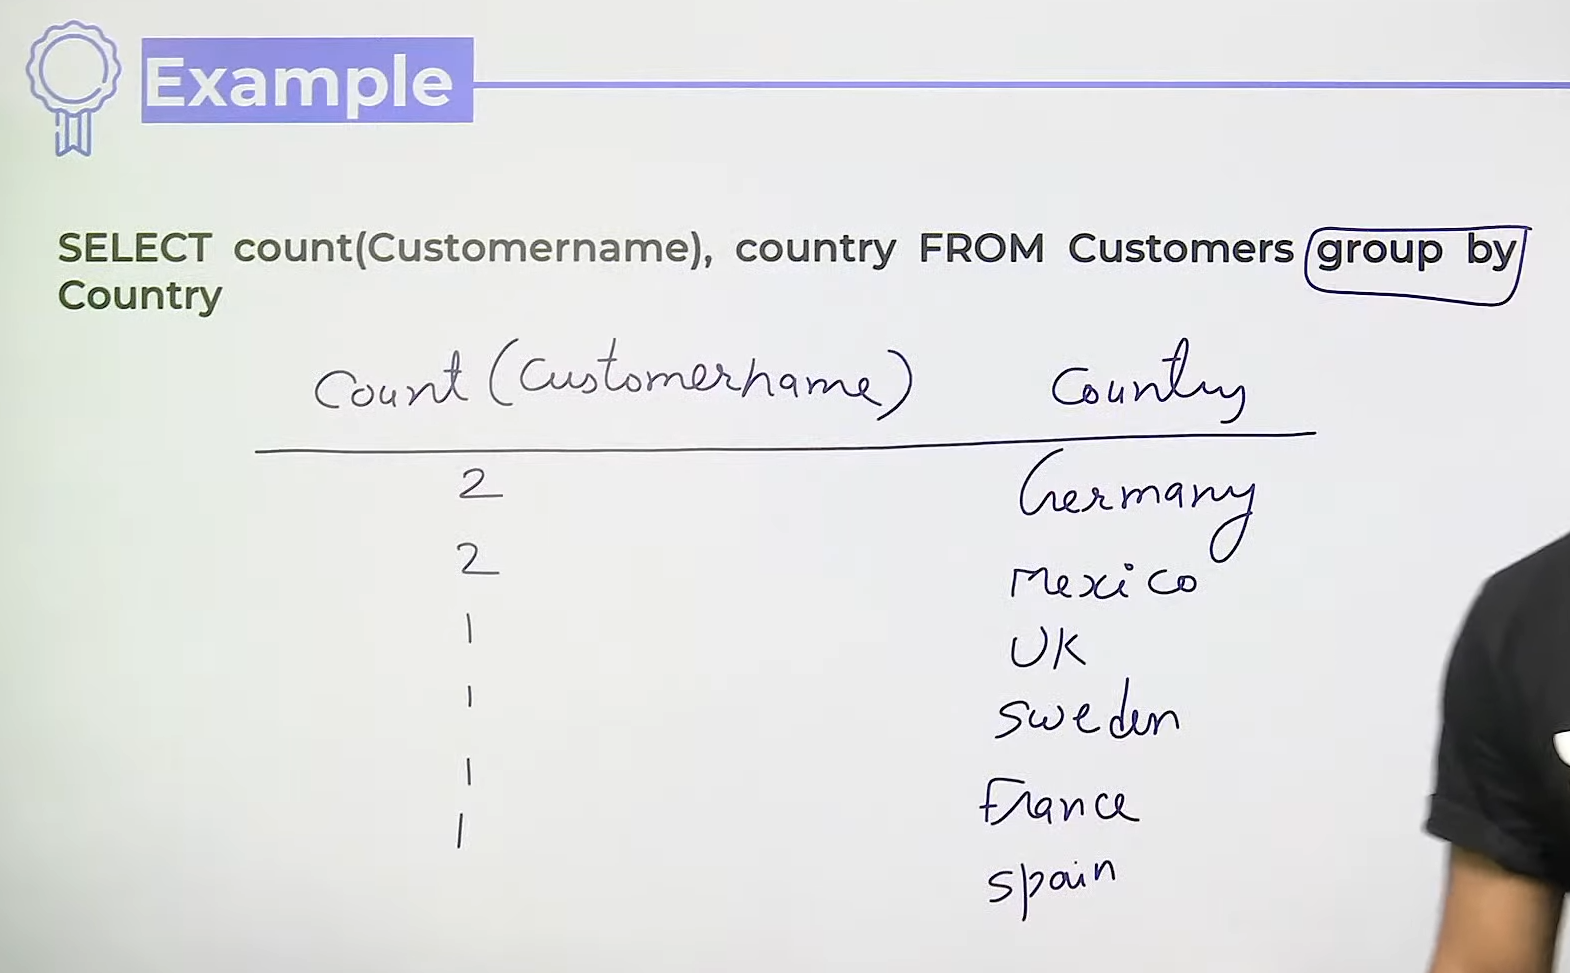 Example
SELECT count(Customername), country FROM Customers group by
Country
Count (Customername) Country
2 Germany
2 Mexico
1 UK
1 Sweden
1 France
1 Spain